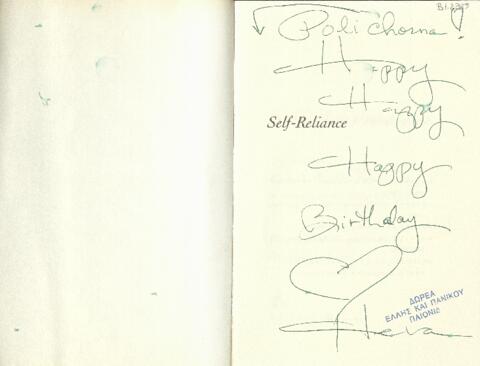 Polichoma!
Happy
Happy
Self-Reliance
Happy
Birthday
ΔΩΡΕΑ
ΕΛΛΗΣ ΚΑΙ ΠΑΝΙΚΟΥ
ΠΑΙΟΝΙΔ